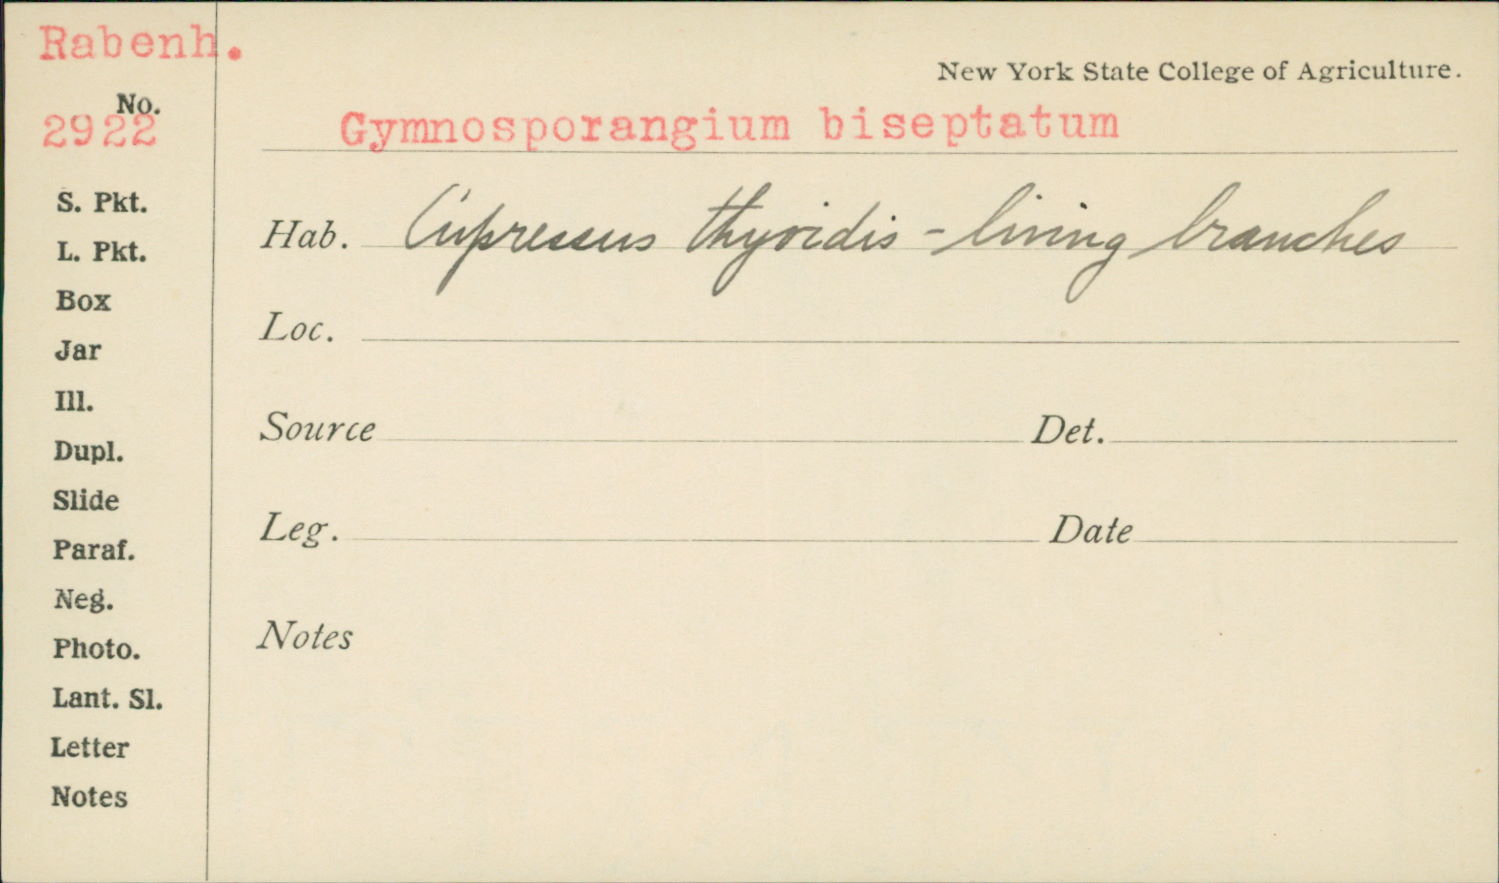 Rabenh.
New York State College of Agriculture.
No.
2922
Gymnosporangium biseptatum
S. Pkt.
L. Pkt.
Box
Jar
Ill.
Dupl.
Slide
Paraf.
Neg.
Photo.
Lant. Sl.
Letter
Notes
Hab. Cupressus thyoidis - living branches
Loc.
Source Det.
Leg. Date
Notes